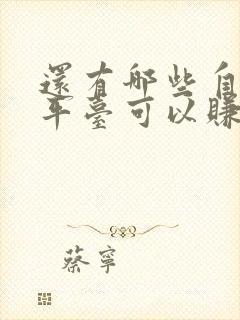 還有哪些自
平臺可以賺
蔡寧